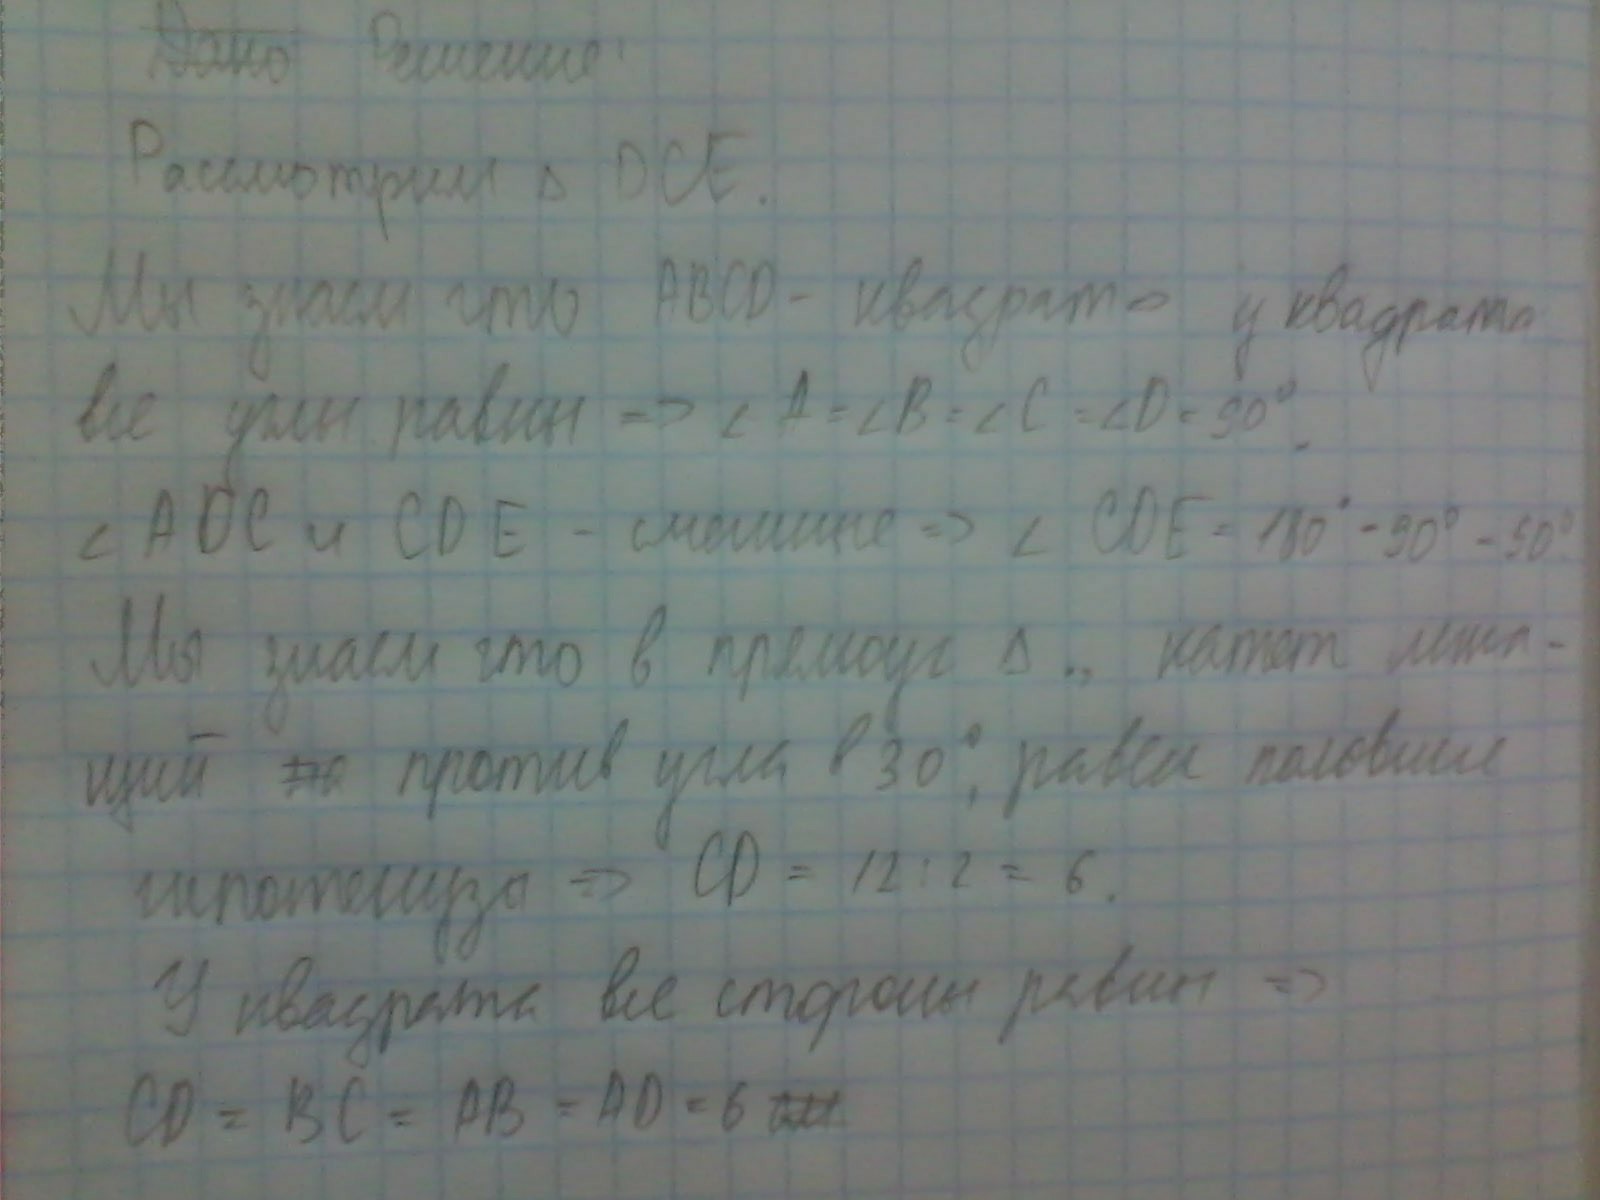 Дано Решение:
Рассмотрим △ DCE.
Мы знаем что ABCD - квадрат у квадрата
все углы равны => ∠ A = ∠B = ∠C = ∠D = 90°.
∠ ADC и CDE - смежные => ∠ CDE = 180° - 90° - 90°
Мы знаем что в прямоуг △ ., катет лежа-
щий против угла в 30°, равен половине
гипотенузы => CD = 12 : 2 = 6.
У квадрата все стороны равны =>
CD = BC = AB = AD = 6